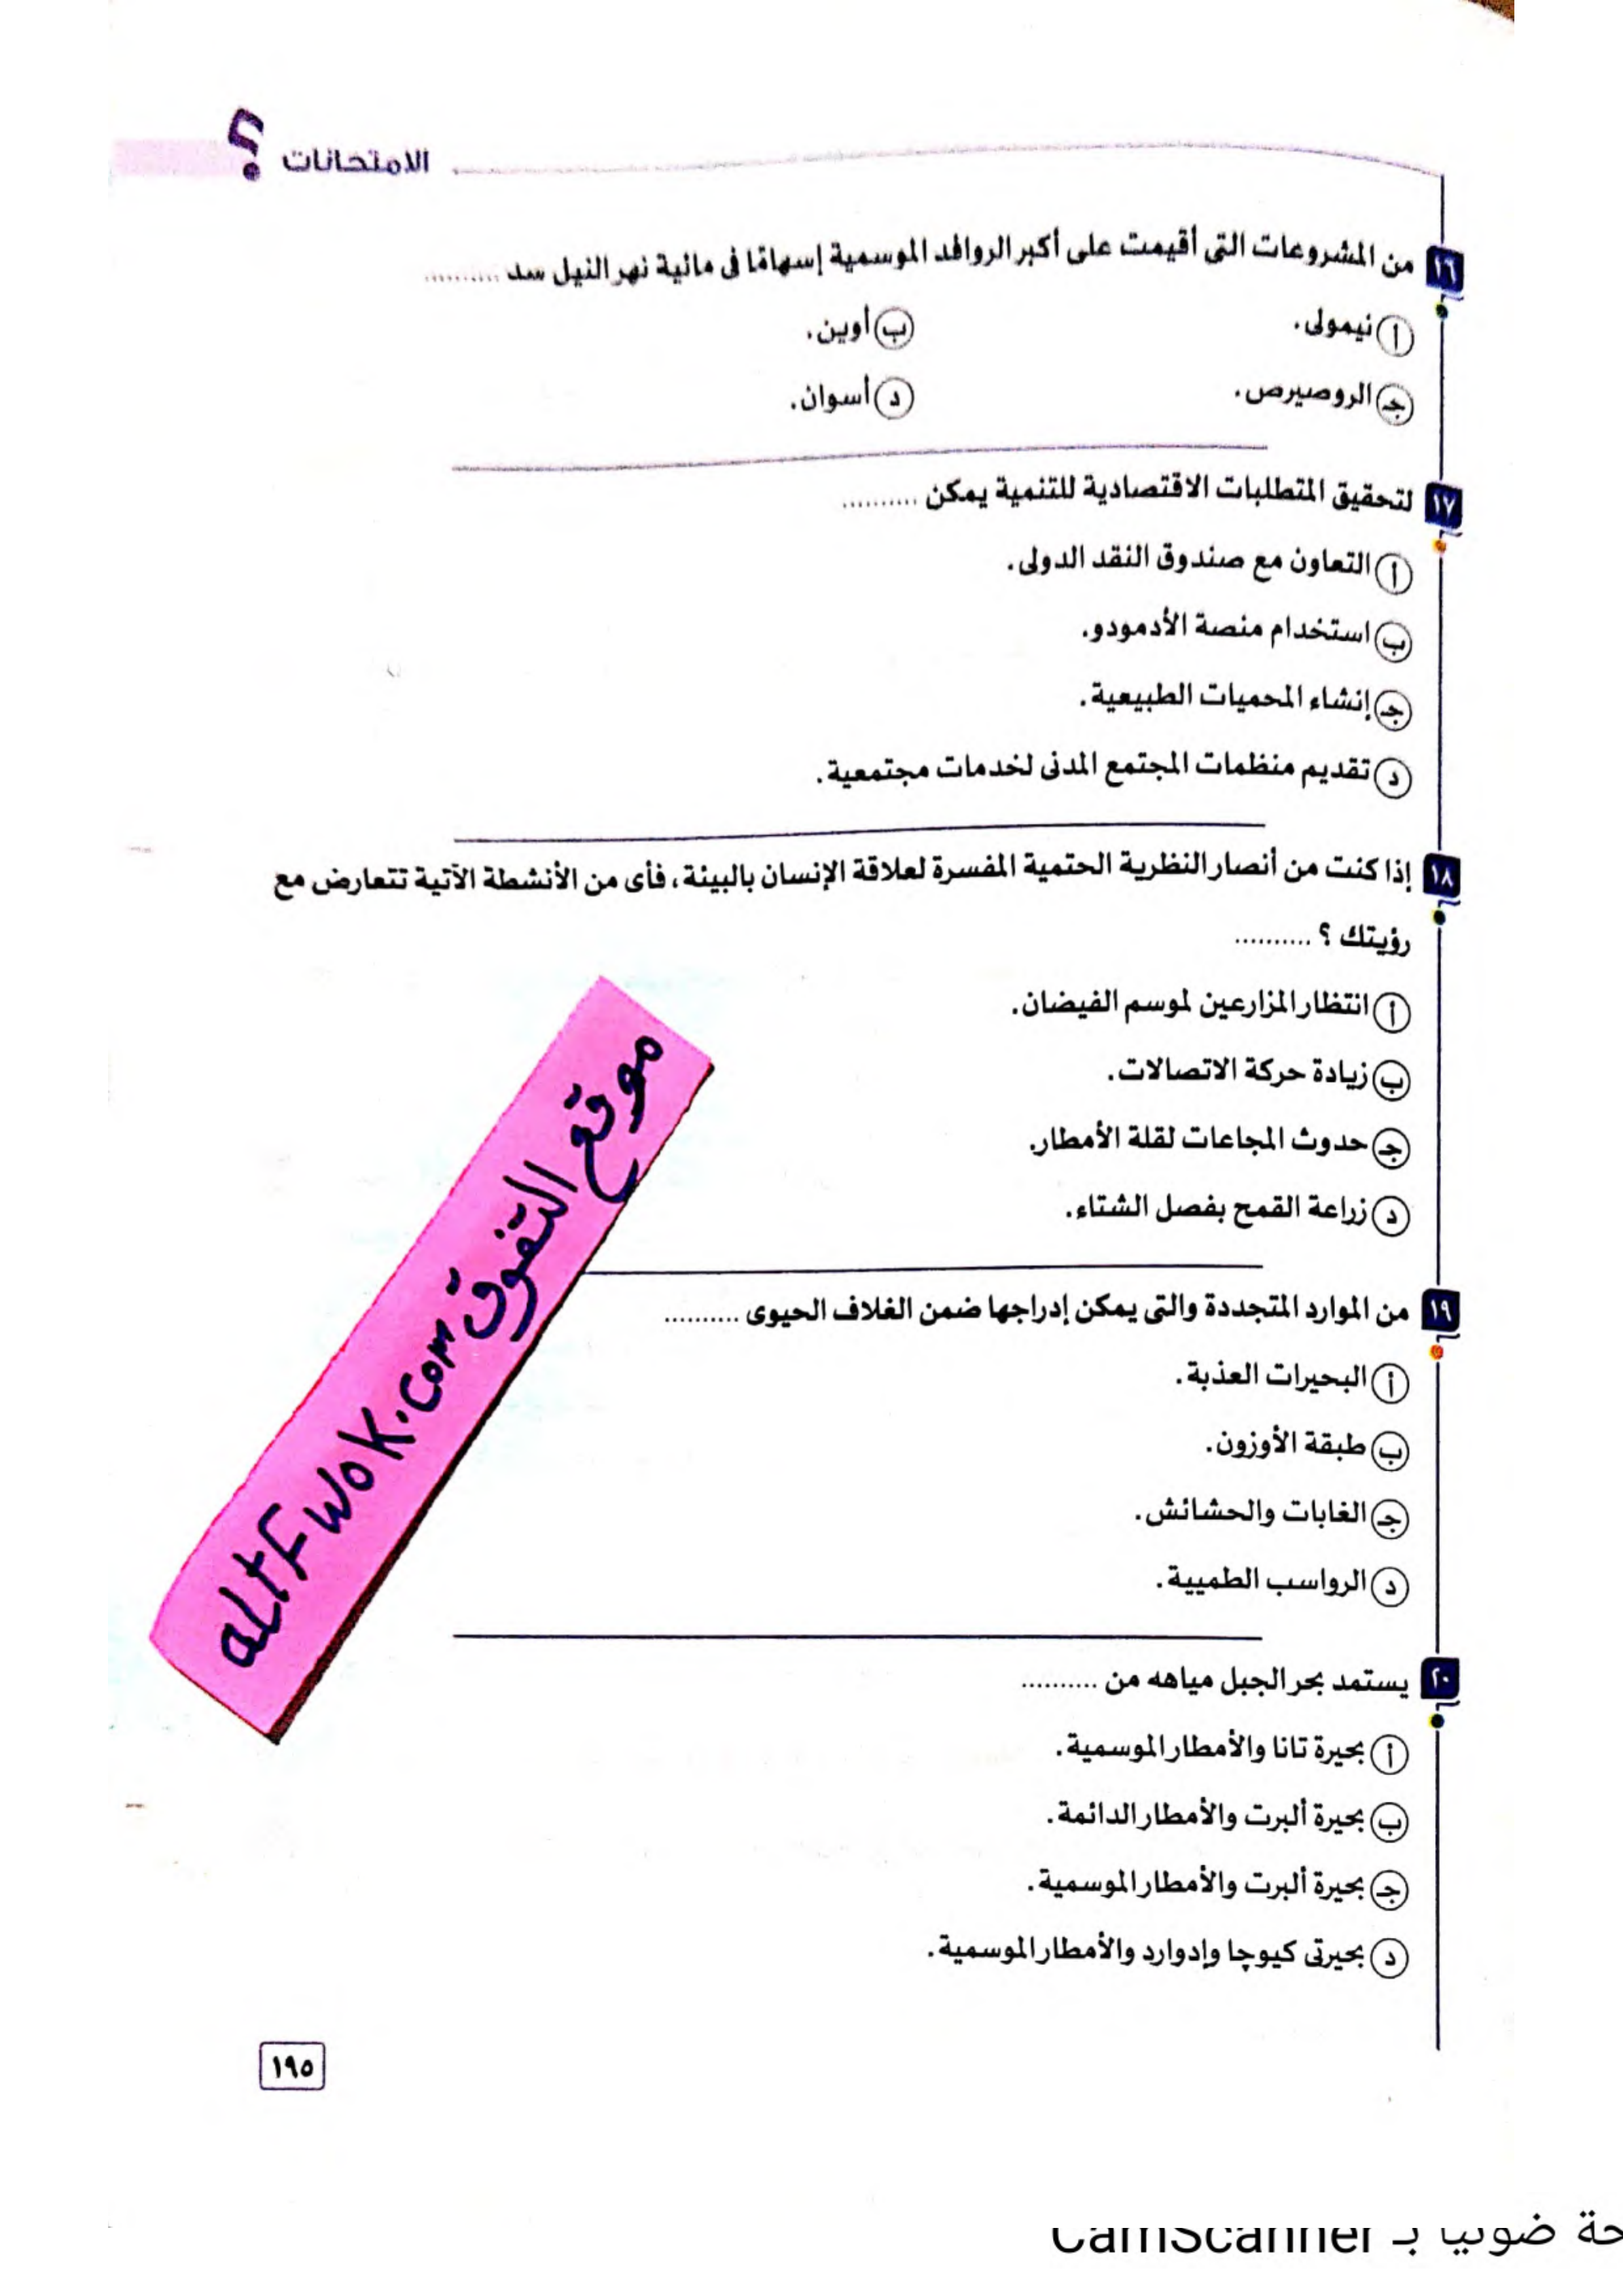 الامتحانات ؟
١٦ من المشروعات التى أقيمت على أكبر الروافد الموسمية إسهامًا فى مائية نهر النيل سد ..........
أ نيمولى.
ب أوين.
جـ الروصيرص.
د أسوان.
١٧ لتحقيق المتطلبات الاقتصادية للتنمية يمكن ..........
أ التعاون مع صندوق النقد الدولى.
ب استخدام منصة الأدمودو.
جـ إنشاء المحميات الطبيعية.
د تقديم منظمات المجتمع المدنى لخدمات مجتمعية.
١٨ إذا كنت من أنصار النظرية الحتمية المفسرة لعلاقة الإنسان بالبيئة، فأى من الأنشطة الآتية تتعارض مع
رؤيتك ؟ ..........
أ انتظار المزارعين لموسم الفيضان.
ب زيادة حركة الاتصالات.
جـ حدوث المجاعات لقلة الأمطار.
د زراعة القمح بفصل الشتاء.
١٩ من الموارد المتجددة والتى يمكن إدراجها ضمن الغلاف الحيوى ..........
أ البحيرات العذبة.
ب طبقة الأوزون.
جـ الغابات والحشائش.
د الرواسب الطميية.
٢٠ يستمد بحر الجبل مياهه من ..........
أ بحيرة تانا والأمطار الموسمية.
ب بحيرة ألبرت والأمطار الدائمة.
جـ بحيرة ألبرت والأمطار الموسمية.
د بحيرتى كيوجا وإدوارد والأمطار الموسمية.
موقع التفوق altFwok.com
١٩٥
حة ضوئيا بـ CamScanner